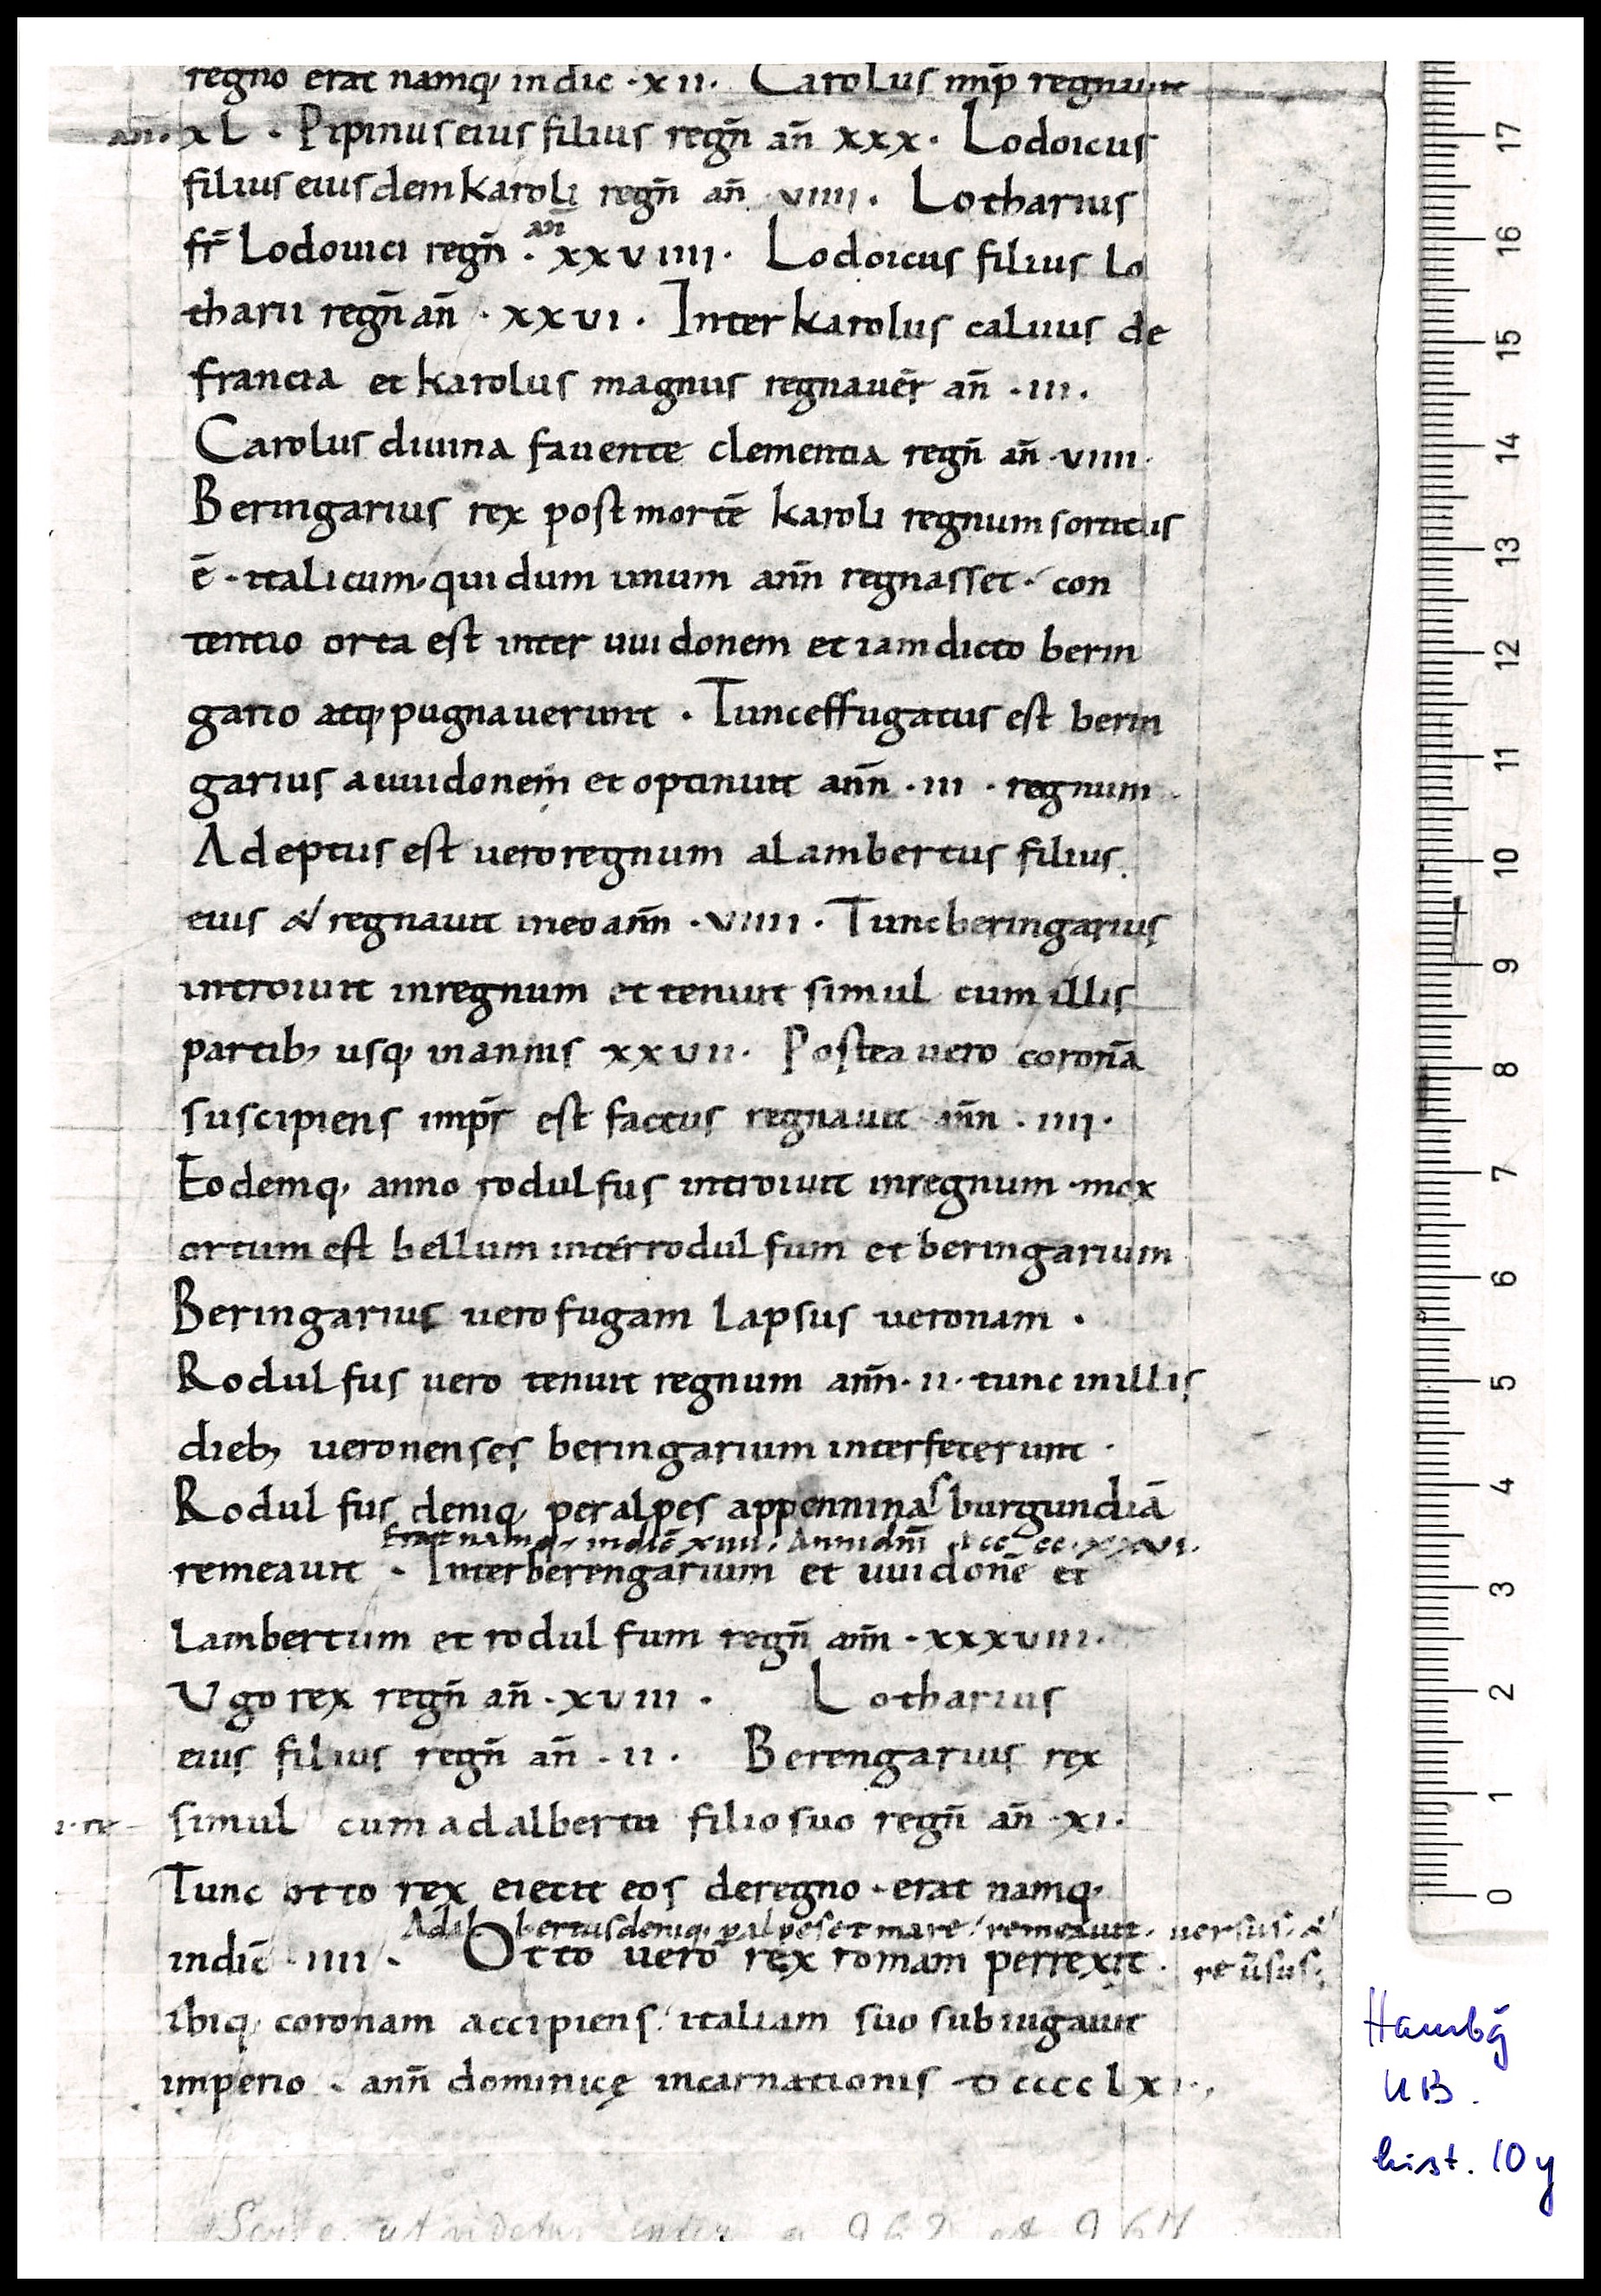 regno erat namq; indic · xii · Carolus imp̄ regnauit
añ · xL · Pipinus eius filius regñ añ xxx · Lodoicus
filius eiusdem karoli regñ añ viiii · Lotharius
añ
fr̄ Lodouici regñ · xxviiii · Lodoicus filius lo
tharii regñ añ · xxvi · Inter karolus caluus de
francia et karolus magnus regnauer̄ añ · iii ·
Carolus diuina fauente clementia regñ añ · viiii ·
Beringarius rex post mortē karoli regnum sortitus
ē · italicum · qui dum unum anñ regnasset · con
tentio orta est inter uuidonem et iamdicto berin
gario atq; pugnauerunt · Tunc effugatus est berin
garius a uuidonem et optinuit anñ · iii · regnum
Adeptus est uero regnum a lambertus filius
eius & regnauit in eo anñ · viiii · Tunc beringarius
introiuit in regnum et tenuit simul cum illis
partib; usq; in annis xxvii · Postea uero coronā
suscipiens imp̄r est factus regnauit anñ · iiii ·
Eodemq; anno rodulfus introiuit in regnum · mox
ortum est bellum inter rodulfum et beringarium
Beringarius uero fugam lapsus ueronam ·
Rodulfus uero tenuit regnum anñ · ii · tunc in illis
dieb; ueronenses beringarium interfecerunt ·
Rodulfus deniq; per alpes appenninas burgundiā
Erat namq; indic̄ xiiii · Anni dñi dcccc · xxvi ·
remeauit · Inter berengarium et uuidonē et
Lambertum et rodulfum regñ anñ · xxxviii ·
Ugo rex regñ añ · xviii · Lotharius
eius filius regñ añ · ii · Berengarius rex
simul cum adalbertu filio suo regñ añ · xi ·
Tunc otto rex eiecit eos de regno · erat namq;
Adilbertus deniq; p̱ alpes et mare remeauit · uersus · &
indic̄ · iiii · Otto uero rex romam perrexit · reūsus ·
ibiq; coronam accipiens italiam suo subiugauit
imperio · anñ dominicę incarnationis dcccclxi ·
Hambg
UB.
hist. 10 y